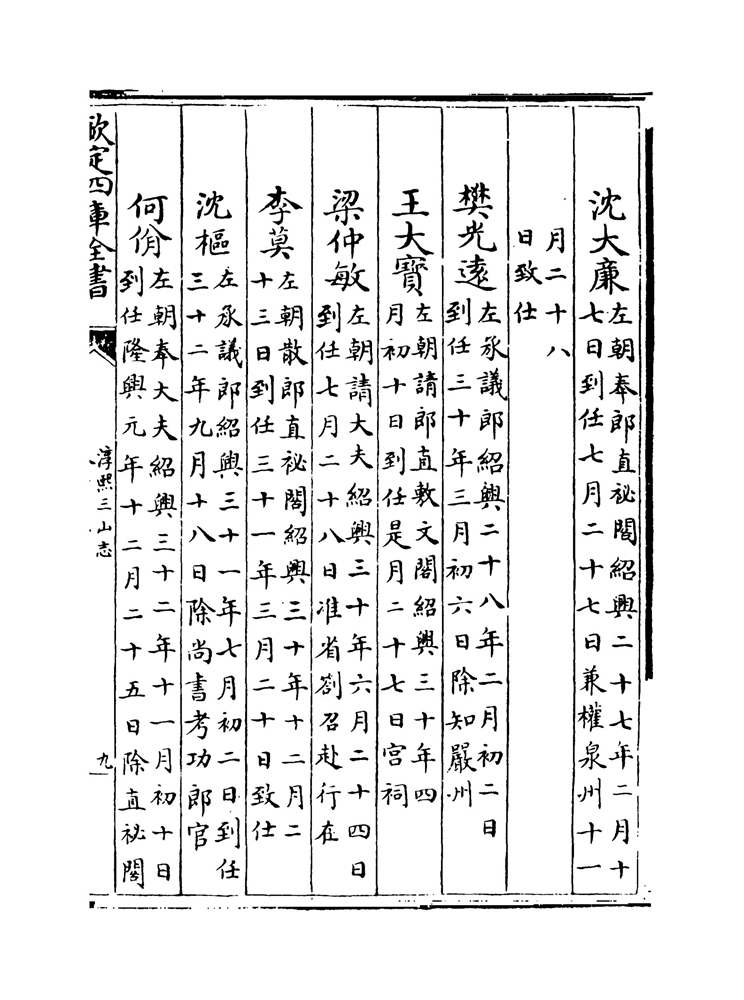 沈大廉左朝奉郎直祕閣紹興二十七年二月十
七日到任七月二十七日兼權泉州十一
月二十八
日致仕
樊光遠左承議郎紹興二十八年二月初二日
到任三十年三月初六日除知嚴州
王大寶左朝請郎直敷文閣紹興三十年四
月初十日到任是月二十七日宫祠
梁仲敏左朝請大夫紹興三十年六月二十四日
到任七月二十八日准省劄召赴行在
李莫左朝散郎直祕閣紹興三十年十二月二
十三日到任三十一年三月二十日致仕
沈樞左承議郎紹興三十一年七月初二日到任
三十二年九月十八日除尚書考功郎官
何俏左朝奉大夫紹興三十二年十一月初十日
到任隆興元年十二月二十五日除直祕閣
欽定四庫全書
淳熙三山志
九